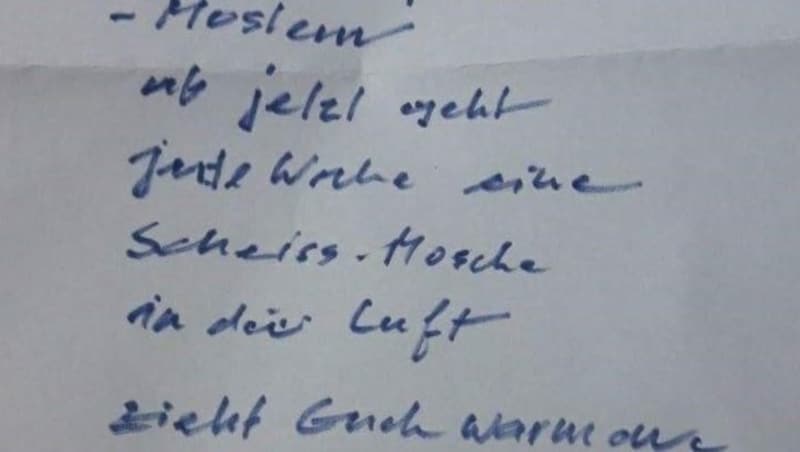 - Moslem
ab jetzt geht
jede Woche eine
Scheiss-Mosche
in die Luft
zieht Euch warm an